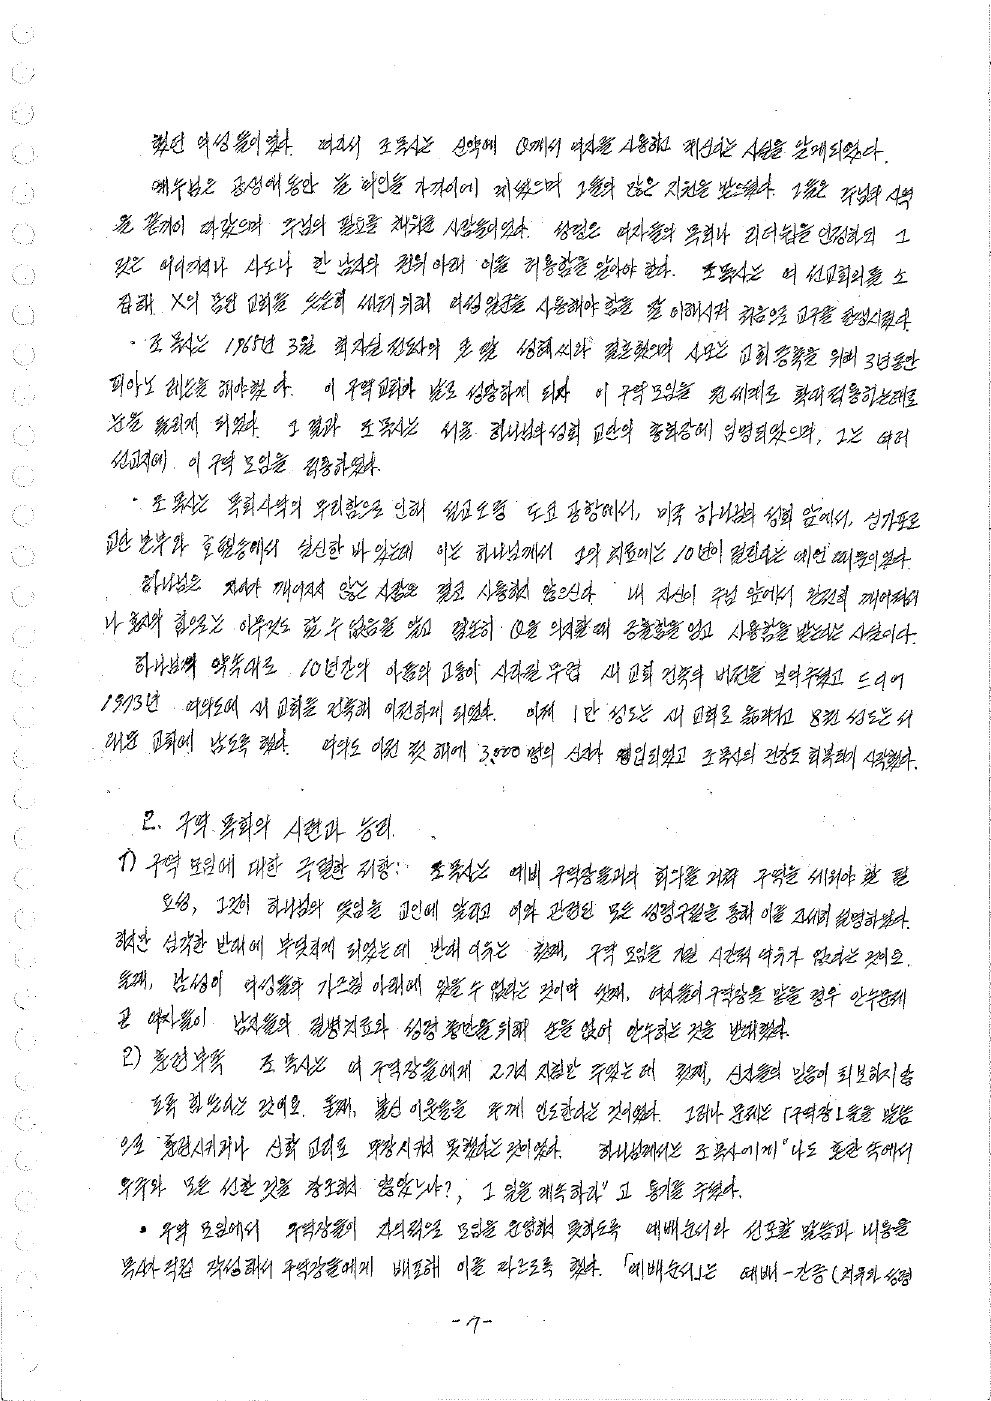 했던 여성들이었다. 따라서 조 목사는 신약에 Q께서 여자를 사용하고 계신다는 사실을 알게되었다.
예수님은 공생애동안 늘 여인을 가까이에 계셨으며 그들의 많은 지원을 받으셨다. 그들은 주님의 사역
을 끝까지 따랐으며 주님의 필요를 채워준 사람들이었다. 성령은 여자들의 목회나 리더쉽을 인정하되 그
것은 어디까지나 사도나 한 남자의 권위 아래 이를 허용함을 알아야 한다. 조 목사는 여 선교회원을 소
집해 X의 몸된 교회를 튼튼히 세우기위해 여성일꾼을 사용해야 함을 잘 이해시켜 처음으로 교구를 탄생시켰다
· 조 목사는 1965년 3월 최자실 전도사의 큰 딸 성혜씨와 결혼했으며 사모는 교회 음악을 위해 3년동안
피아노 레슨을 해야했다. 이 구역교회가 날로 성장하게 되자 이 구역모임을 전 세계로 확대 적용하는데로
눈을 돌리게 되었다. 그 결과 조 목사는 서울 하나님의성회 교단의 총회장에 임명되었으며, 그는 여러
선교지에 이 구역 모임을 적용하였다.
· 조 목사는 목회사역의 무리함으로 인해 설교도중 도쿄 공항에서, 미국 하나님의 성회 앞에서, 싱가포르
교단 본부와 호텔등에서 실신한 바 있는데 이는 하나님께서 그의 치료에는 10년이 걸린다는 예언때문이었다.
하나님은 자아가 깨어지지 않는 사람은 결코 사용하지 않으신다. 내 자신이 주님 앞에서 완전히 깨어져서
나 혼자의 힘으로는 아무것도 할 수 없음을 알고 겸손히 Q을 의지할때 긍휼함을 입고 사용함을 받는다는 사실이다.
하나님의 약속대로 10년간의 아픔의 고통이 사라질 무렵 새 교회 건축의 비전을 보여주셨고 드디어
1973년 여의도에 새 교회를 건축해 이전하게 되었다. 이제 1만 성도는 새 교회로 옮겨가고 8천 성도는 서
대문 교회에 남도록 했다. 여의도 이전 첫 해에 3,000명의 신자가 영입되었고 조 목사의 건강도 회복되기 시작했다.
2. 구역 목회의 시련과 승리
1) 구역 모임에 대한 극렬한 저항: 조 목사는 예비 구역장들과의 회의를 거쳐 구역을 세워야 할 필
요성, 그것이 하나님의 뜻임을 교인에 알리고 이와 관련된 모든 성경구절을 통해 이를 자세히 설명하였다.
하지만 심각한 반대에 부딪치게 되었는데 반대 이유는 첫째, 구역 모임을 가질 시간적 여유가 없다는 것이요.
둘째, 남성이 여성들의 가르침 아래에 있을 수 없다는 것이며 셋째, 여자들이 구역장을 맡을 경우 안수문제
곧 여자들이 남자들의 질병치료와 성령 충만을 위해 손을 얹어 안수하는 것을 반대했다.
2) 훈련부족 조 목사는 여 구역장들에게 2가지 지침만 주었는데 첫째, 신자들의 믿음이 퇴보하지 않
도록 힘쓰라는 것이요. 둘째, 불신 이웃들을 주께 인도한다는 것이었다. 그러나 문제는 「구역장」들을 말씀
으로 훈련시키거나 신학 교리로 무장시키지 못했다는 것이었다. 하나님께서는 조 목사에게 "나도 혼란 속에서
우주와 모든 선한 것을 창조하지 않았느냐?, 그 일을 계속하라"고 용기를 주셨다.
· 구역 모임에서 구역장들이 자의적으로 모임을 운영하지 못하도록 예배순서와 선포할 말씀과 내용을
목사가 직접 작성해서 구역장들에게 배포해 이를 따르도록 했다. 「예배순서」는 예배-간증(치유와 성령
-7-